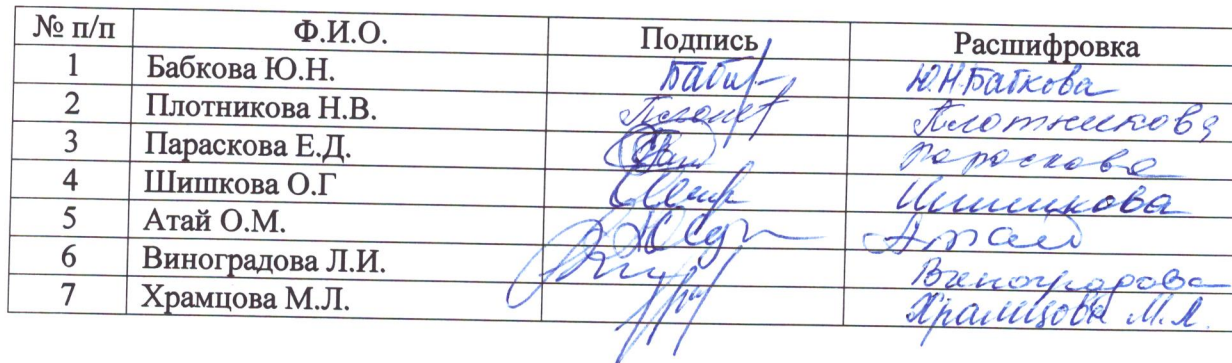 № п/п Ф.И.О. Подпись Расшифровка
1 Бабкова Ю.Н. Ю.Н.Бабкова
2 Плотникова Н.В. Плотникова
3 Параскова Е.Д. Параскова
4 Шишкова О.Г Шишкова
5 Атай О.М. Атай
6 Виноградова Л.И. Виноградова
7 Храмцова М.Л. Храмцова М.Л.